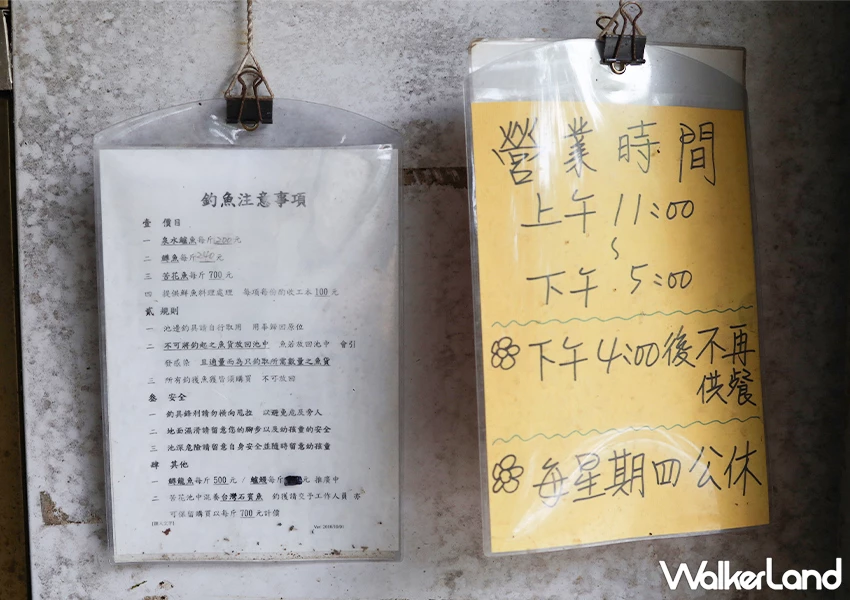 釣魚注意事項
壹 價目
一 泉水鱸魚每斤200元
二 鱒魚每斤240元
三 苦花魚每斤700元
四 提供鮮魚料理處理 每項每份酌收工本100元
貳 規則
一 池邊釣具請自行取用 用畢歸回原位
二 不可將釣起之魚貨放回池中 魚若放回池中 會引
發感染 且適量而為只釣取所需數量之魚貨
三 所有釣獲魚獲皆須購買 不可放回
參 安全
一 釣具鋒利請勿橫向甩拉 以避免危及旁人
二 地面濕滑請留意您的腳步以及幼孩童的安全
三 池深危險請留意自身安全並隨時留意幼孩童
肆 其他
一 鱘龍魚每斤500元 / 鱸鰻每斤元 推廣中
二 苦花池中混養台灣石賓魚 釣獲請交予工作人員 亦
可保留購買以每斤700元計價
營業時間
上午11:00
~
下午5:00
下午4:00後不再
供餐
每星期四公休
WalkerLand